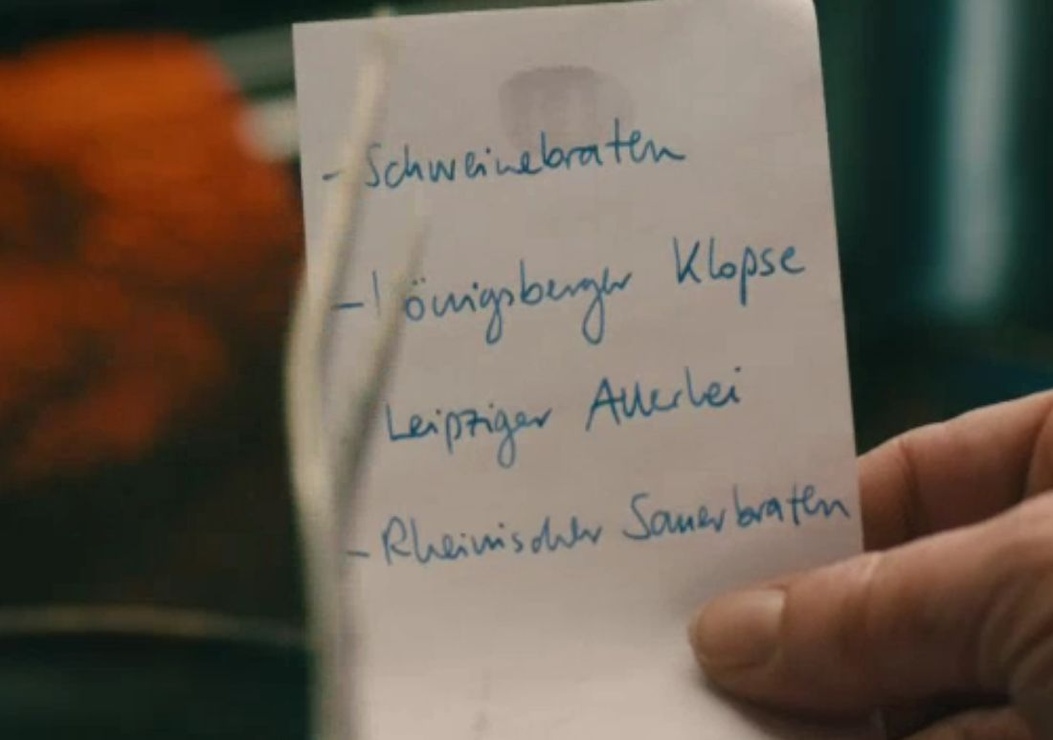 - Schweinebraten
- Königsberger Klopse
Leipziger Allerlei
- Rheinischer Sauerbraten